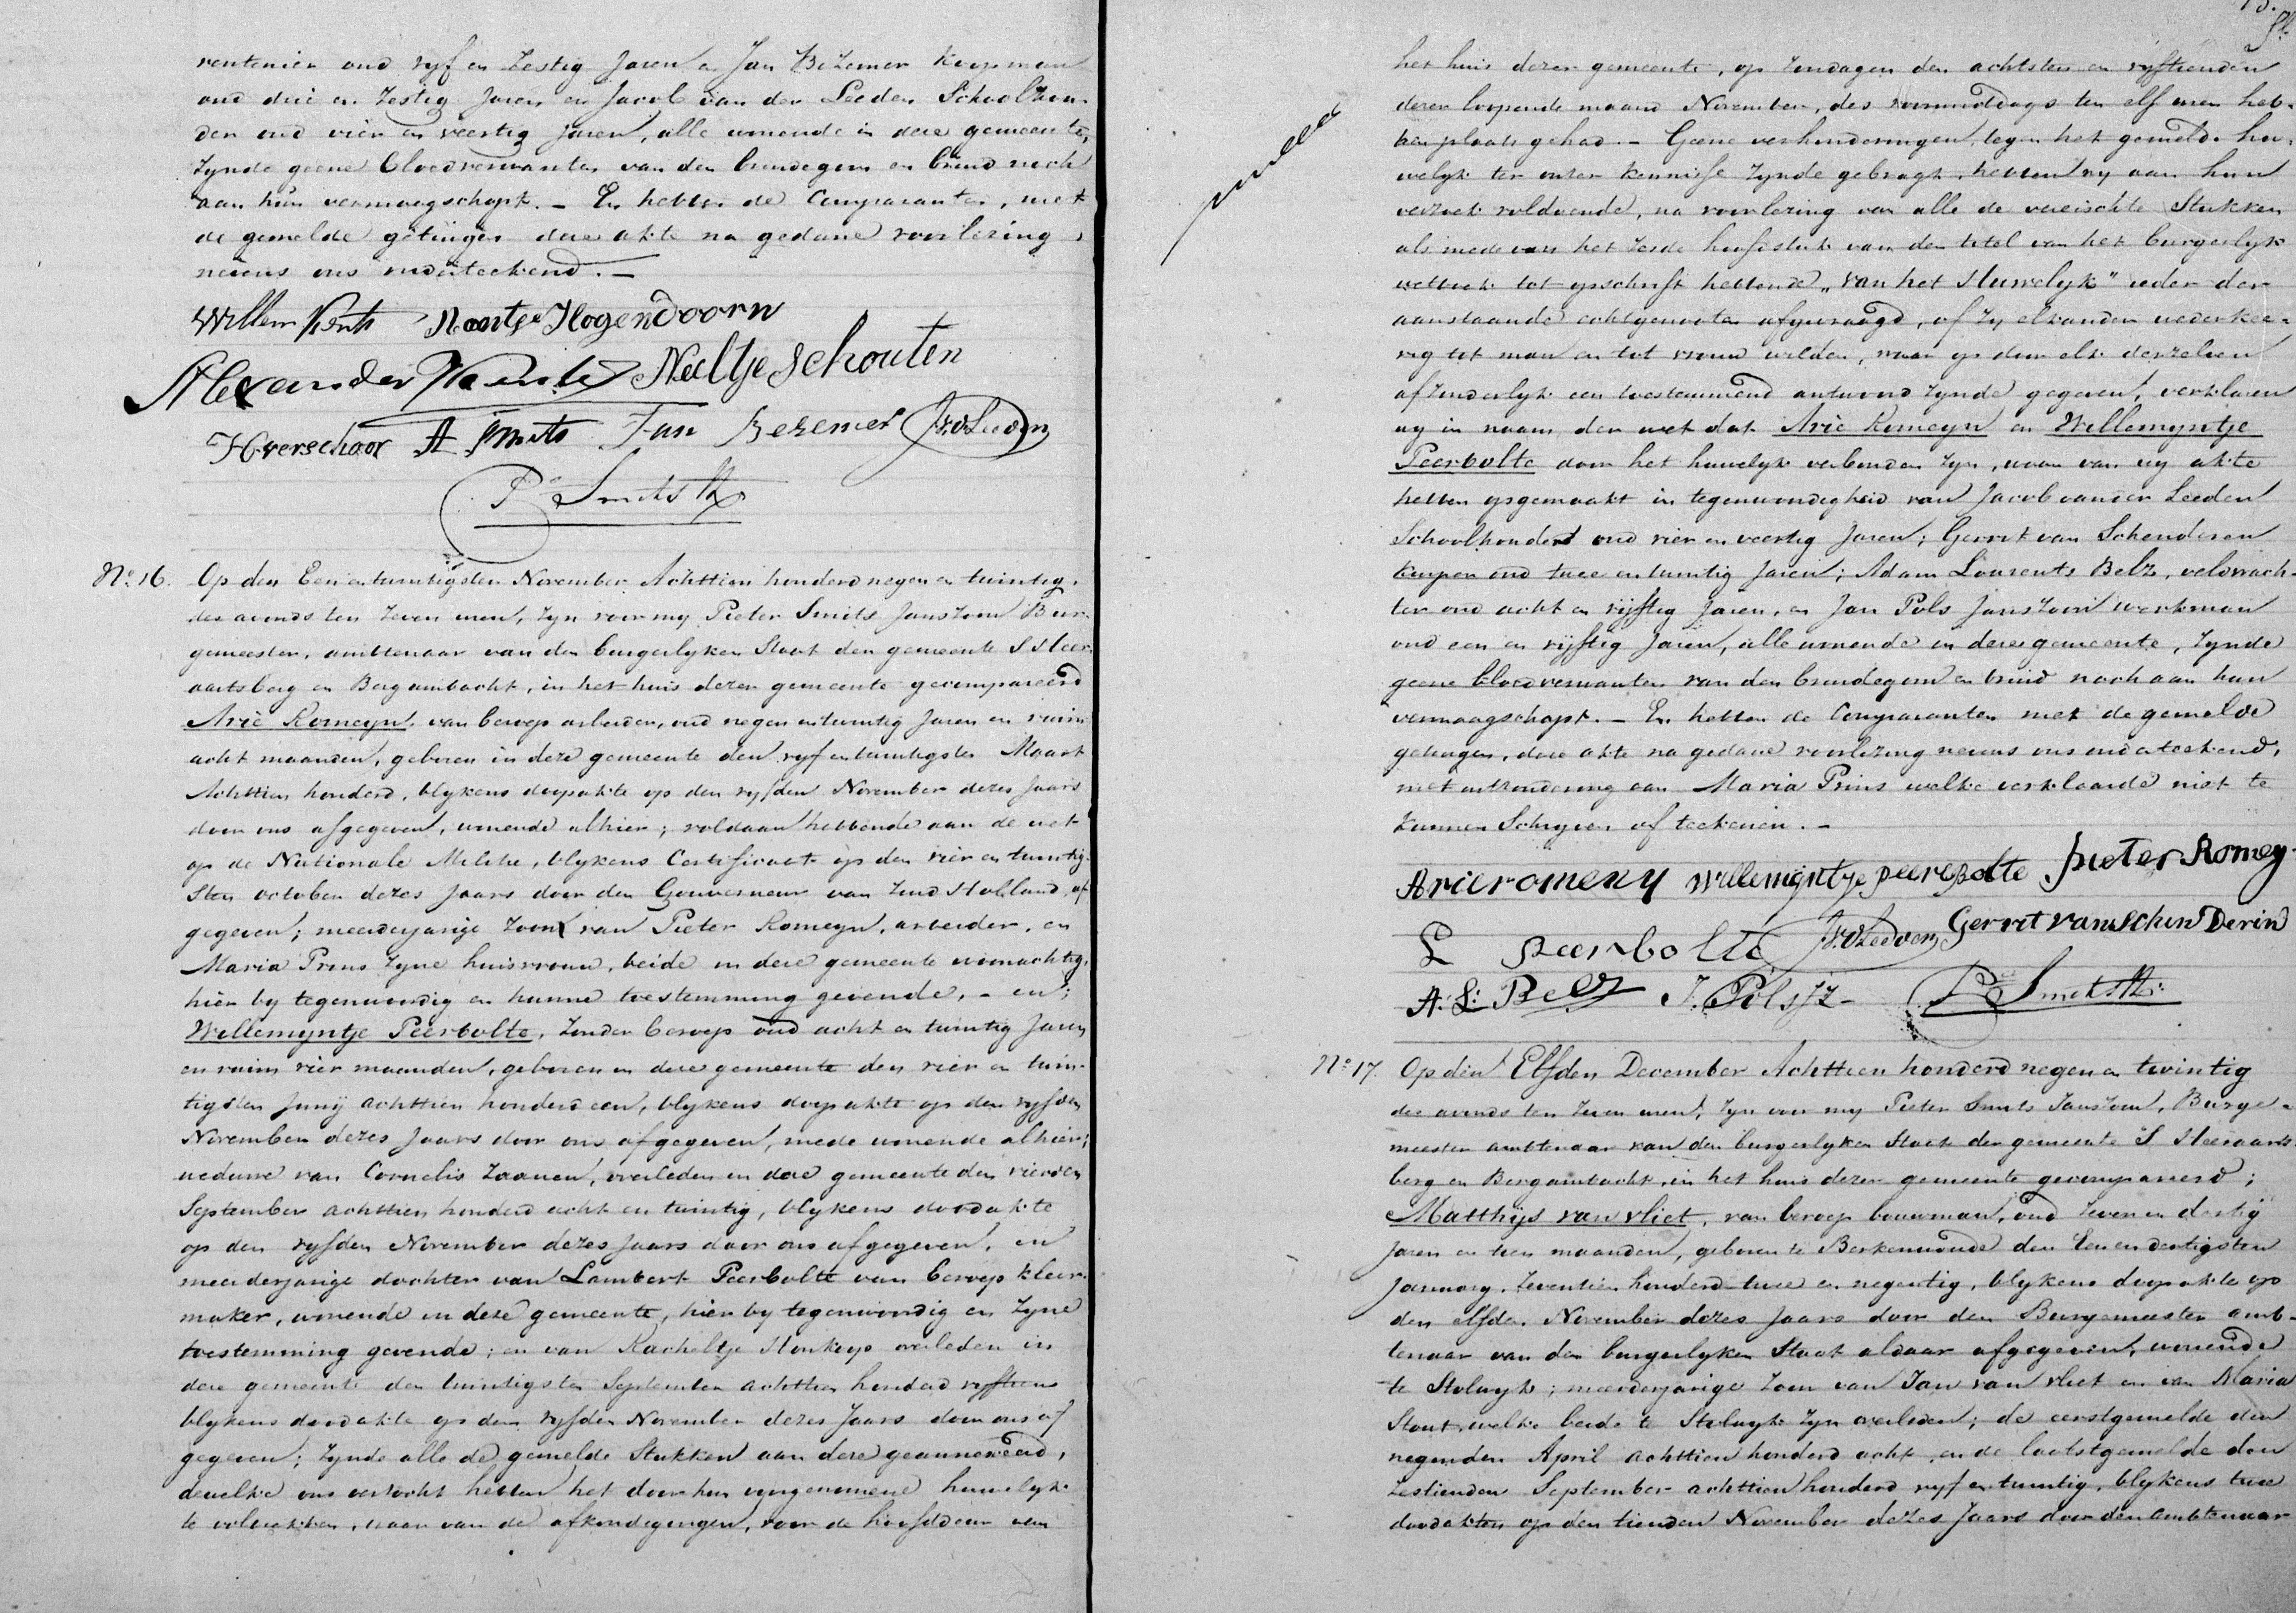 rentenier oud vyf en Zestig Jaren en Jan Bezemer Koopman
oud drie en Zestig Jaren en Jacob van der Leeden Schoolhou-
der oud vier en veertig Jaren, alle wonende in deze gemeente,
Zynde geene bloedverwanten van den bruidegom en bruid noch
aan hun vermaagschapt. – En hebben de Comparanten, met
de gemelde getuigen deze akte na gedane voorlezing,
nevens ons onderteekend. –
Willem Hogendoorn
Alexander Neeltje Schouten
H verschoor A Smits Jan Bezemer JvdLeeden
P Smits JZ
No. 16. Op den Een en twintigsten November Achttien honderd negen en twintig,
des avonds ten Zeven uren, Zyn voor my Pieter Smits Janszoon Bur-
gemeester, ambtenaar van den burgerlyken Staat der gemeente S Heer-
aartsberg en Bergambacht, in het huis dezer gemeente gecompareerd
Arie Romeyn, van beroep arbeider, oud negen en twintig Jaren en ruim
acht maanden, geboren in deze gemeente den vyf en twintigsten Maart
Achttien honderd, blykens doopakte op den vyfden November dezes Jaars
door ons afgegeven, wonende alhier; voldaan hebbende aan de wet
op de Nationale Militie, blykens Certificaat op den vier en twintig-
sten october dezes Jaars door den Gouverneur van Zuid Holland af
gegeven; meerderjarige Zoon van Pieter Romeyn, arbeider, en
Maria Prins Zyne huisvrouw, beide in deze gemeente woonachtig,
hier by tegenwoordig en hunne toestemming gevende, – en;
Willemyntje Peerbolte, Zonder beroep oud acht en twintig Jaren
en ruim vier maanden, geboren in deze gemeente den vier en twin-
tigsten Junij achttien honderd een, blykens doopakte op den vyfden
November dezes Jaars door ons afgegeven, mede wonende alhier;
weduwe van Cornelis Zaanen, overleden in deze gemeente den vierden
September achttien honderd acht en twintig, blykens doodakte
op den vyfden November dezes Jaars door ons afgegeven, en
meerderjarige dochter van Lambert Peerbolte van beroep kleer-
maker, wonende in deze gemeente, hier by tegenwoordig en Zyne
toestemming gevende; en van Racheltje overleden in
deze gemeente den twintigsten September achttien honderd vyftien
blykens doodakte op den vyfden November dezes Jaars door ons af
gegeven; Zynde alle de gemelde Stukken aan deze geannexeerd,
dewelke ons verzocht hebben het door hun voorgenomene huwelyk
te voltrekken, waar van de afkondigingen, voor de hoofddeur van
het huis dezer gemeente, op Zondagen den achtsten en vyftienden
dezer loopende maand November, des voormiddags ten elf uren heb-
ben plaats gehad. – Geene verhinderingen tegen het gemelde hu-
welyk ter onzer kennisse Zynde gebragt, hebben wy aan hun
verzoek voldoende, na voorlezing van alle de vereischte Stukken
als mede van het Zesde hoofdstuk van den titel van het burgerlyk
wetboek tot opschrift hebbende „van het Huwelyk" ieder der
aanstaande echtgenooten afgevraagd, of Zy elkander wederkee-
rig tot man en tot vrouw wilden, waar op door elk derzelven
afzonderlyk een toestemmend antwoord Zynde gegeven, verklaren
wy in naam der wet dat Arie Romeyn en Willemyntje
Peerbolte door het huwelyk verbonden Zyn, waar van wy akte
hebben opgemaakt in tegenwoordigheid van Jacob van der Leeden
Schoolhouder oud vier en veertig Jaren; Gerrit van Schenderen
kuiper oud twee en twintig Jaren; Adam Lourents Belz, veldwach-
ter oud acht en vijftig Jaren, en Jan Pols Janszoon werkman
oud een en vijftig Jaren, alle wonende in deze gemeente, Zynde
geene bloedverwanten van den bruidegom en bruid noch aan hun
vermaagschapt. – En hebben de Comparanten met de gemelde
getuigen, deze akte na gedane voorlezing nevens ons onderteekend,
met uitzondering van Maria Prins welke verklaarde niet te
kunnen Schryven of teekenen. –
Arie romeny willemijntje peerebolte pieter Romey
L peerbolte JvdLeeden Gerrit van Schin Derin
A: L: Belz J. Pols JZ – P Smits JZ
No 17. Op den Elfden December Achttien honderd negen en twintig
des avonds ten Zeven uren, Zyn voor my Pieter Smits Janszoon, Burge-
meester ambtenaar van den burgerlyken Staat der gemeente S Heeraarts-
berg en Bergambacht, in het huis dezer gemeente gecompareerd;
Matthijs van vliet, van beroep bouwman, oud Zeven en dertig
Jaren en tien maanden, geboren te Berkenwoude den Een en dertigsten
January Zeventien honderd twee en negentig, blykens doopakte op
den elfden November dezes Jaars door den Burgemeester amb-
tenaar van den burgerlyken Staat aldaar afgegeven, wonende
te Stolwyk; meerderjarige Zoon van Jan van vliet en van Maria
Stout, welke beide te Stolwyk Zyn overleden; de eerstgemelde den
negenden April achttien honderd acht, en de laatstgemelde den
Zestienden September achttien honderd vyf en twintig, blykens twee
doodakten op den tienden November dezes Jaars door den ambtenaar